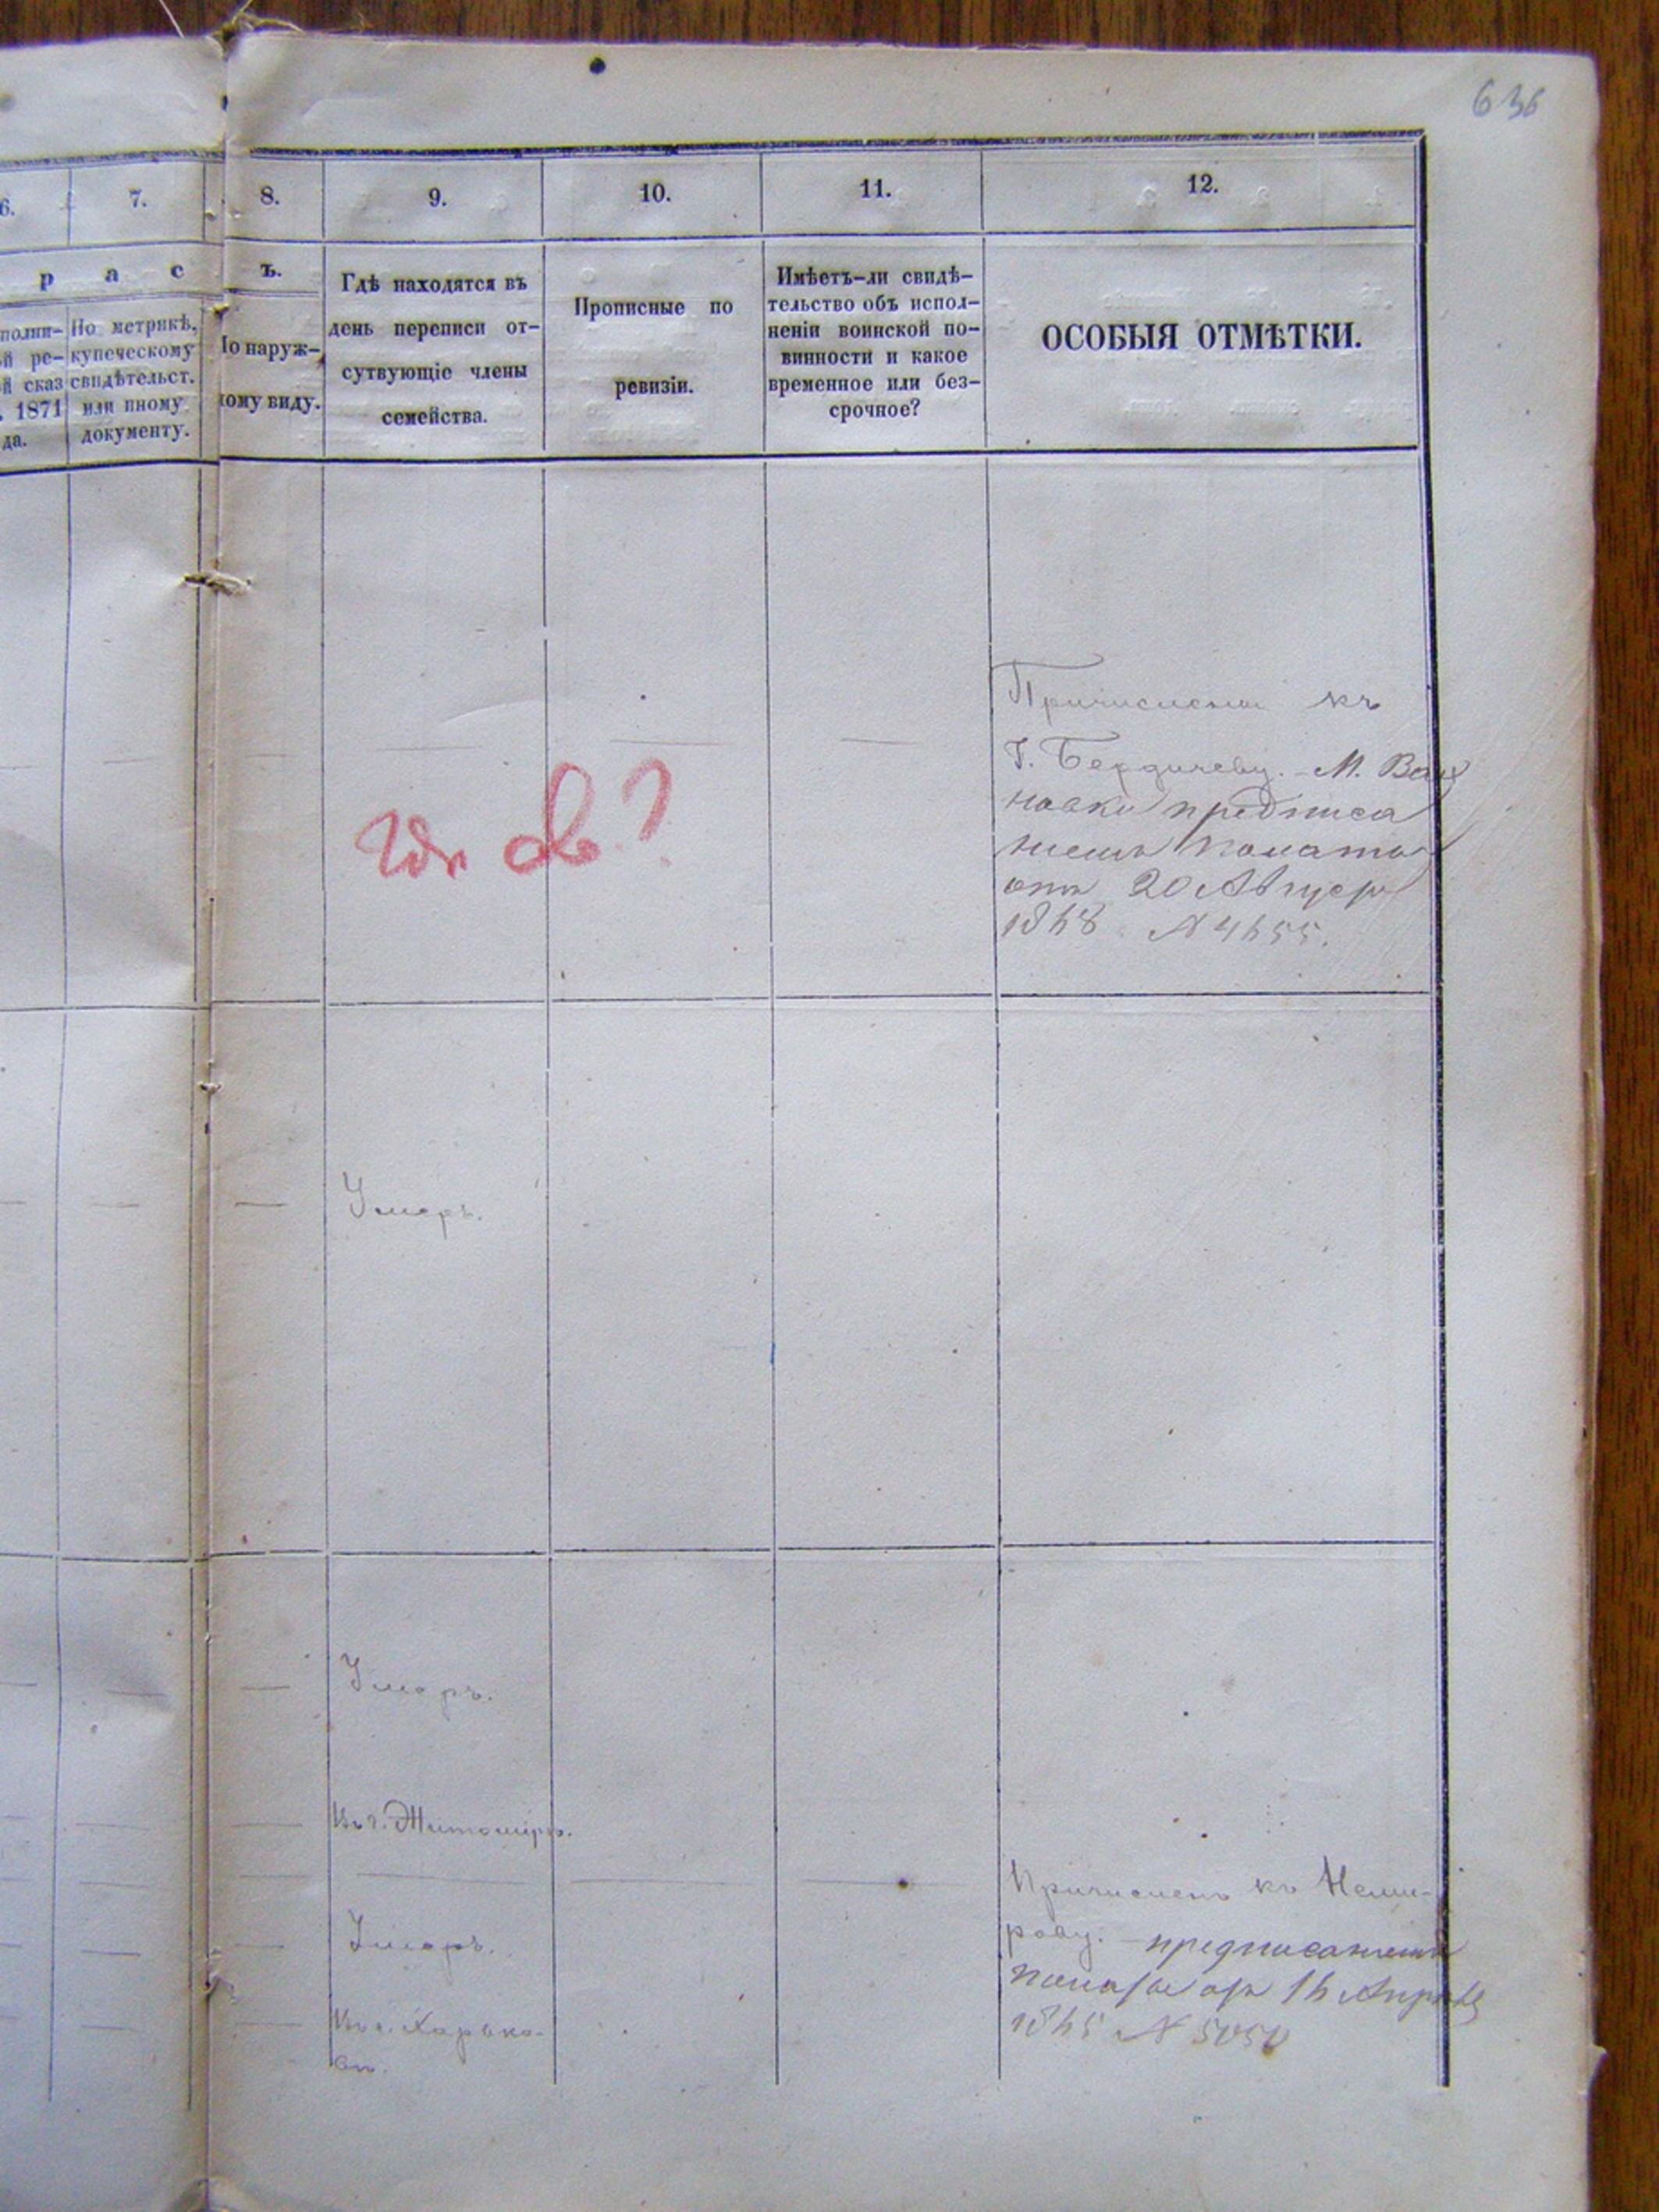 636
6. 7. 8. 9. 10. 11. 12.
р а с ъ.
полни-
й ре-
й сказ
. 1871
да.
По метрикѣ,
купеческому
свидѣтельст.
или иному
документу.
По наруж-
ному виду.
Гдѣ находятся въ
день переписи от-
сутвующіе члены
семейства.
Прописные по
ревизіи.
Имѣетъ-ли свидѣ-
тельство объ испол-
неніи воинской по-
винности и какое
временное или без-
срочное?
ОСОБЫЯ ОТМѢТКИ.
Причислены къ
Г. Бердичеву. - М.
новки предписа
ніемъ Палаты
отъ 20 Августа
1868 № 4655.
Умеръ.
Умеръ.
Въ г. Житомірѣ.
Умеръ.
Въ г. Харько-
вѣ.
Причисленъ къ Неми-
рову. - предписаніемъ
Палаты отъ 16 Апрѣля
1865 № 5050